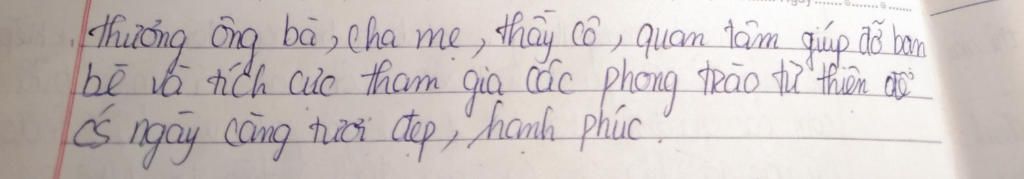 thương ông bà, cha mẹ, thầy cô, quan tâm giúp đỡ bạn
bè và tích cực tham gia các phong trào từ thiện để
c/s ngày càng tươi đẹp, hạnh phúc.